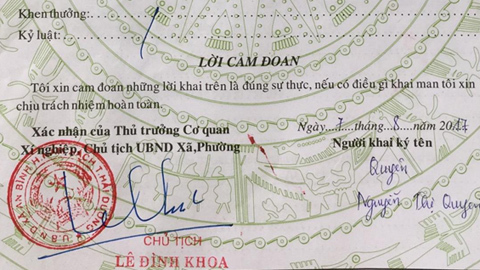 Khen thưởng:
Kỷ luật:
LỜI CAM ĐOAN
Tôi xin cam đoan những lời khai trên là đúng sự thực, nếu có điều gì khai man tôi xin
chịu trách nhiệm hoàn toàn.
Xác nhận của Thủ trưởng Cơ quan
Xí nghiệp, Chủ tịch UBND Xã,Phường
Ngày...7...tháng...8...năm 2017
Người khai ký tên
Quyên
Nguyễn Thị Quyên
CHỦ TỊCH
LÊ ĐÌNH KHOA